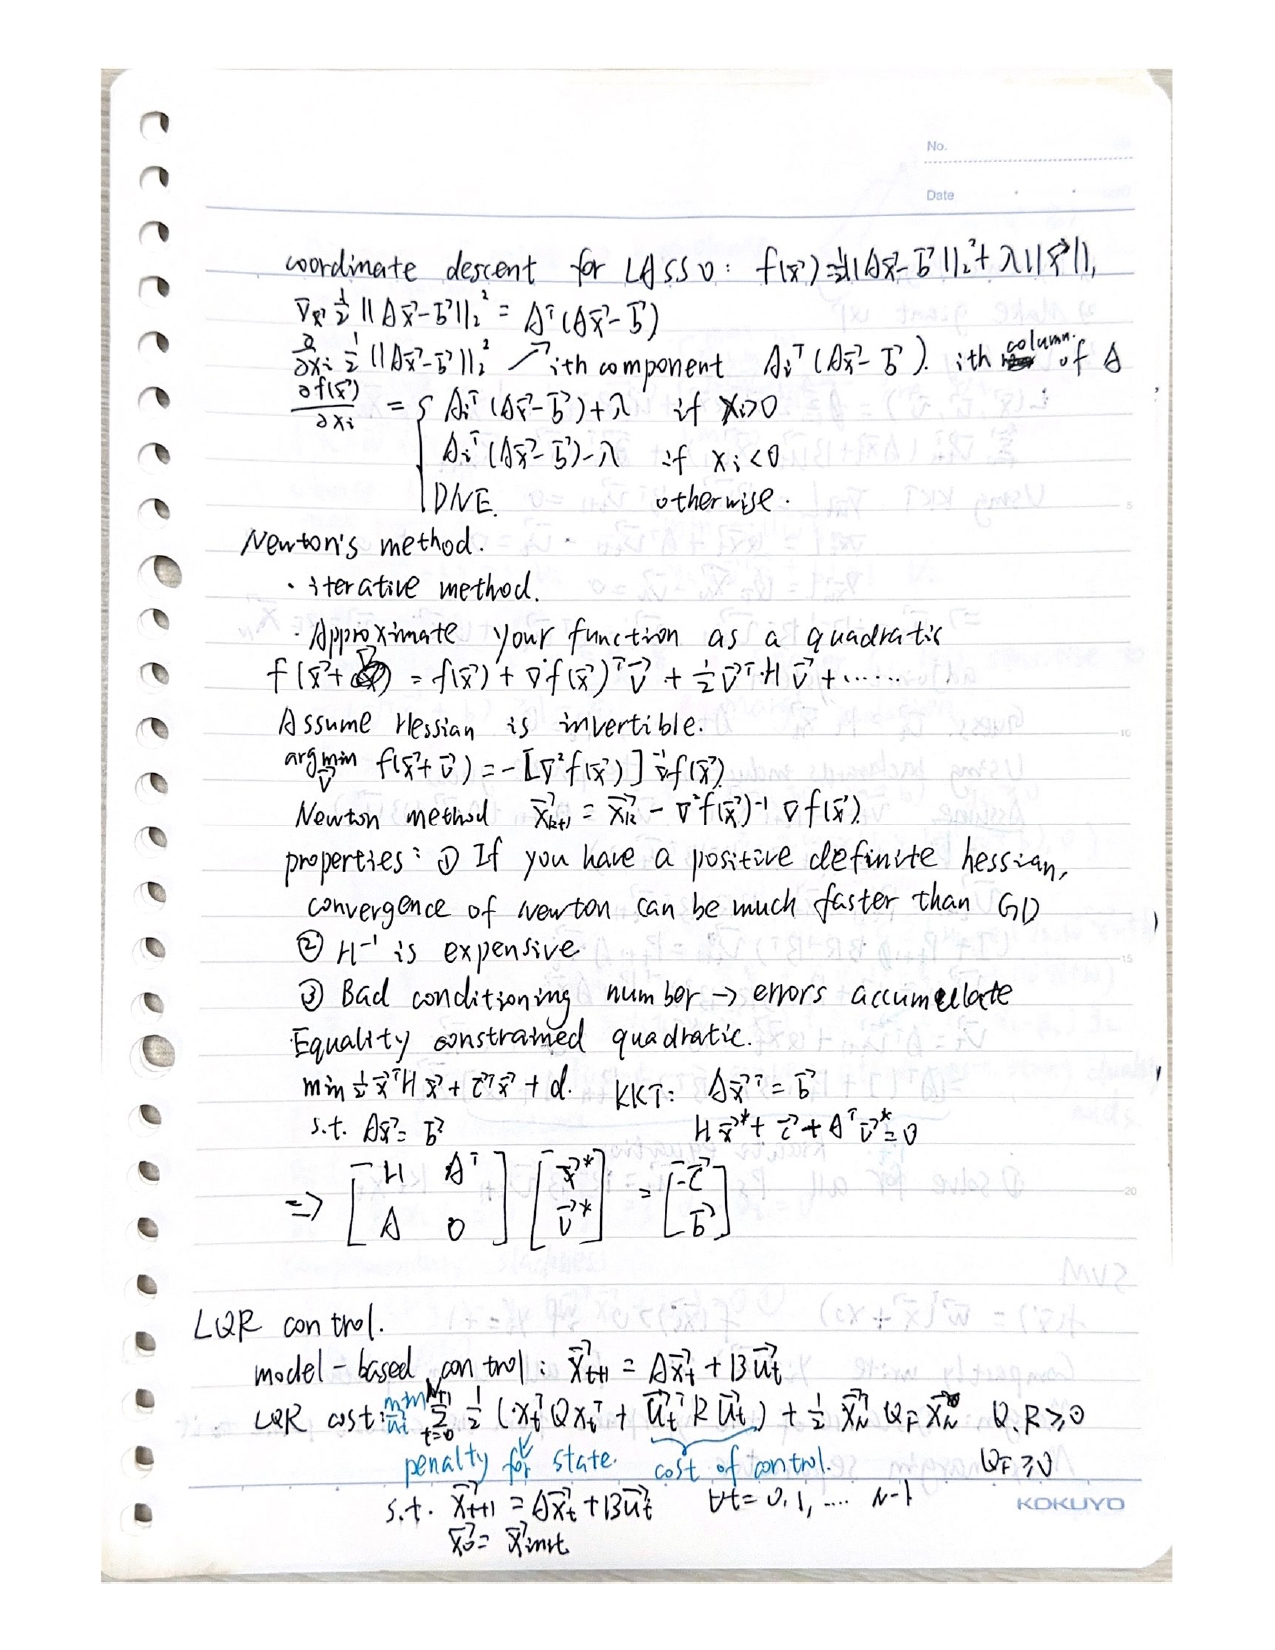 No.
Date
coordinate descent for LASSO: f(x⃗)=½||Ax⃗-b⃗||₂²+λ||x⃗||₁
∇x⃗ ½||Ax⃗-b⃗||₂² = Aᵀ(Ax⃗-b⃗)
∂/∂xᵢ ½||Ax⃗-b⃗||₂² ↗ ith component Aᵢᵀ(Ax⃗-b⃗). ith column. of A
∂f(x⃗)/∂xᵢ = { Aᵢᵀ(Ax⃗-b⃗)+λ if xᵢ>0
Aᵢᵀ(Ax⃗-b⃗)-λ if xᵢ<0
DNE. otherwise.
Newton's method.
· iterative method.
· Approximate your function as a quadratic
f(x⃗+v⃗) = f(x⃗) + ∇f(x⃗)ᵀv⃗ + ½v⃗ᵀ·H v⃗ + ······
Assume Hessian is invertible.
argmin v⃗ f(x⃗+v⃗) = -[∇²f(x⃗)]⁻¹∇f(x⃗)
Newton method x⃗ₖ₊₁ = x⃗ₖ - ∇²f(x⃗)⁻¹ ∇f(x⃗).
properties: ① If you have a positive definite hessian,
convergence of newton can be much faster than GD
② H⁻¹ is expensive
③ Bad conditioning number → errors accumulate
Equality constrained quadratic.
min ½x⃗ᵀHx⃗ + c⃗ᵀx⃗ + d. KKT: Ax⃗ᵀ = b⃗
s.t. Ax⃗ = b⃗ Hx⃗* + c⃗ + Aᵀv⃗* = 0
=> [H Aᵀ; A 0] [x⃗*; v⃗*] = [-c⃗; b⃗]
LQR control.
model-based control: x⃗ₜ₊₁ = Ax⃗ₜ + Bu⃗ₜ
LQR cost: min u⃗ₜ Σₜ₌₀ᴺ⁺¹ ½(x⃗ₜᵀQxₜᵀ + u⃗ₜᵀRu⃗ₜ) + ½x⃗ₙᵀQ_F x⃗ₙ Q.R ≥ 0
penalty for state. cost of control. Q_F ≥ 0
s.t. x⃗ₜ₊₁ = Ax⃗ₜ + Bu⃗ₜ ∀t = 0,1, .... N-1
x⃗₀ = x⃗init.
KOKUYO